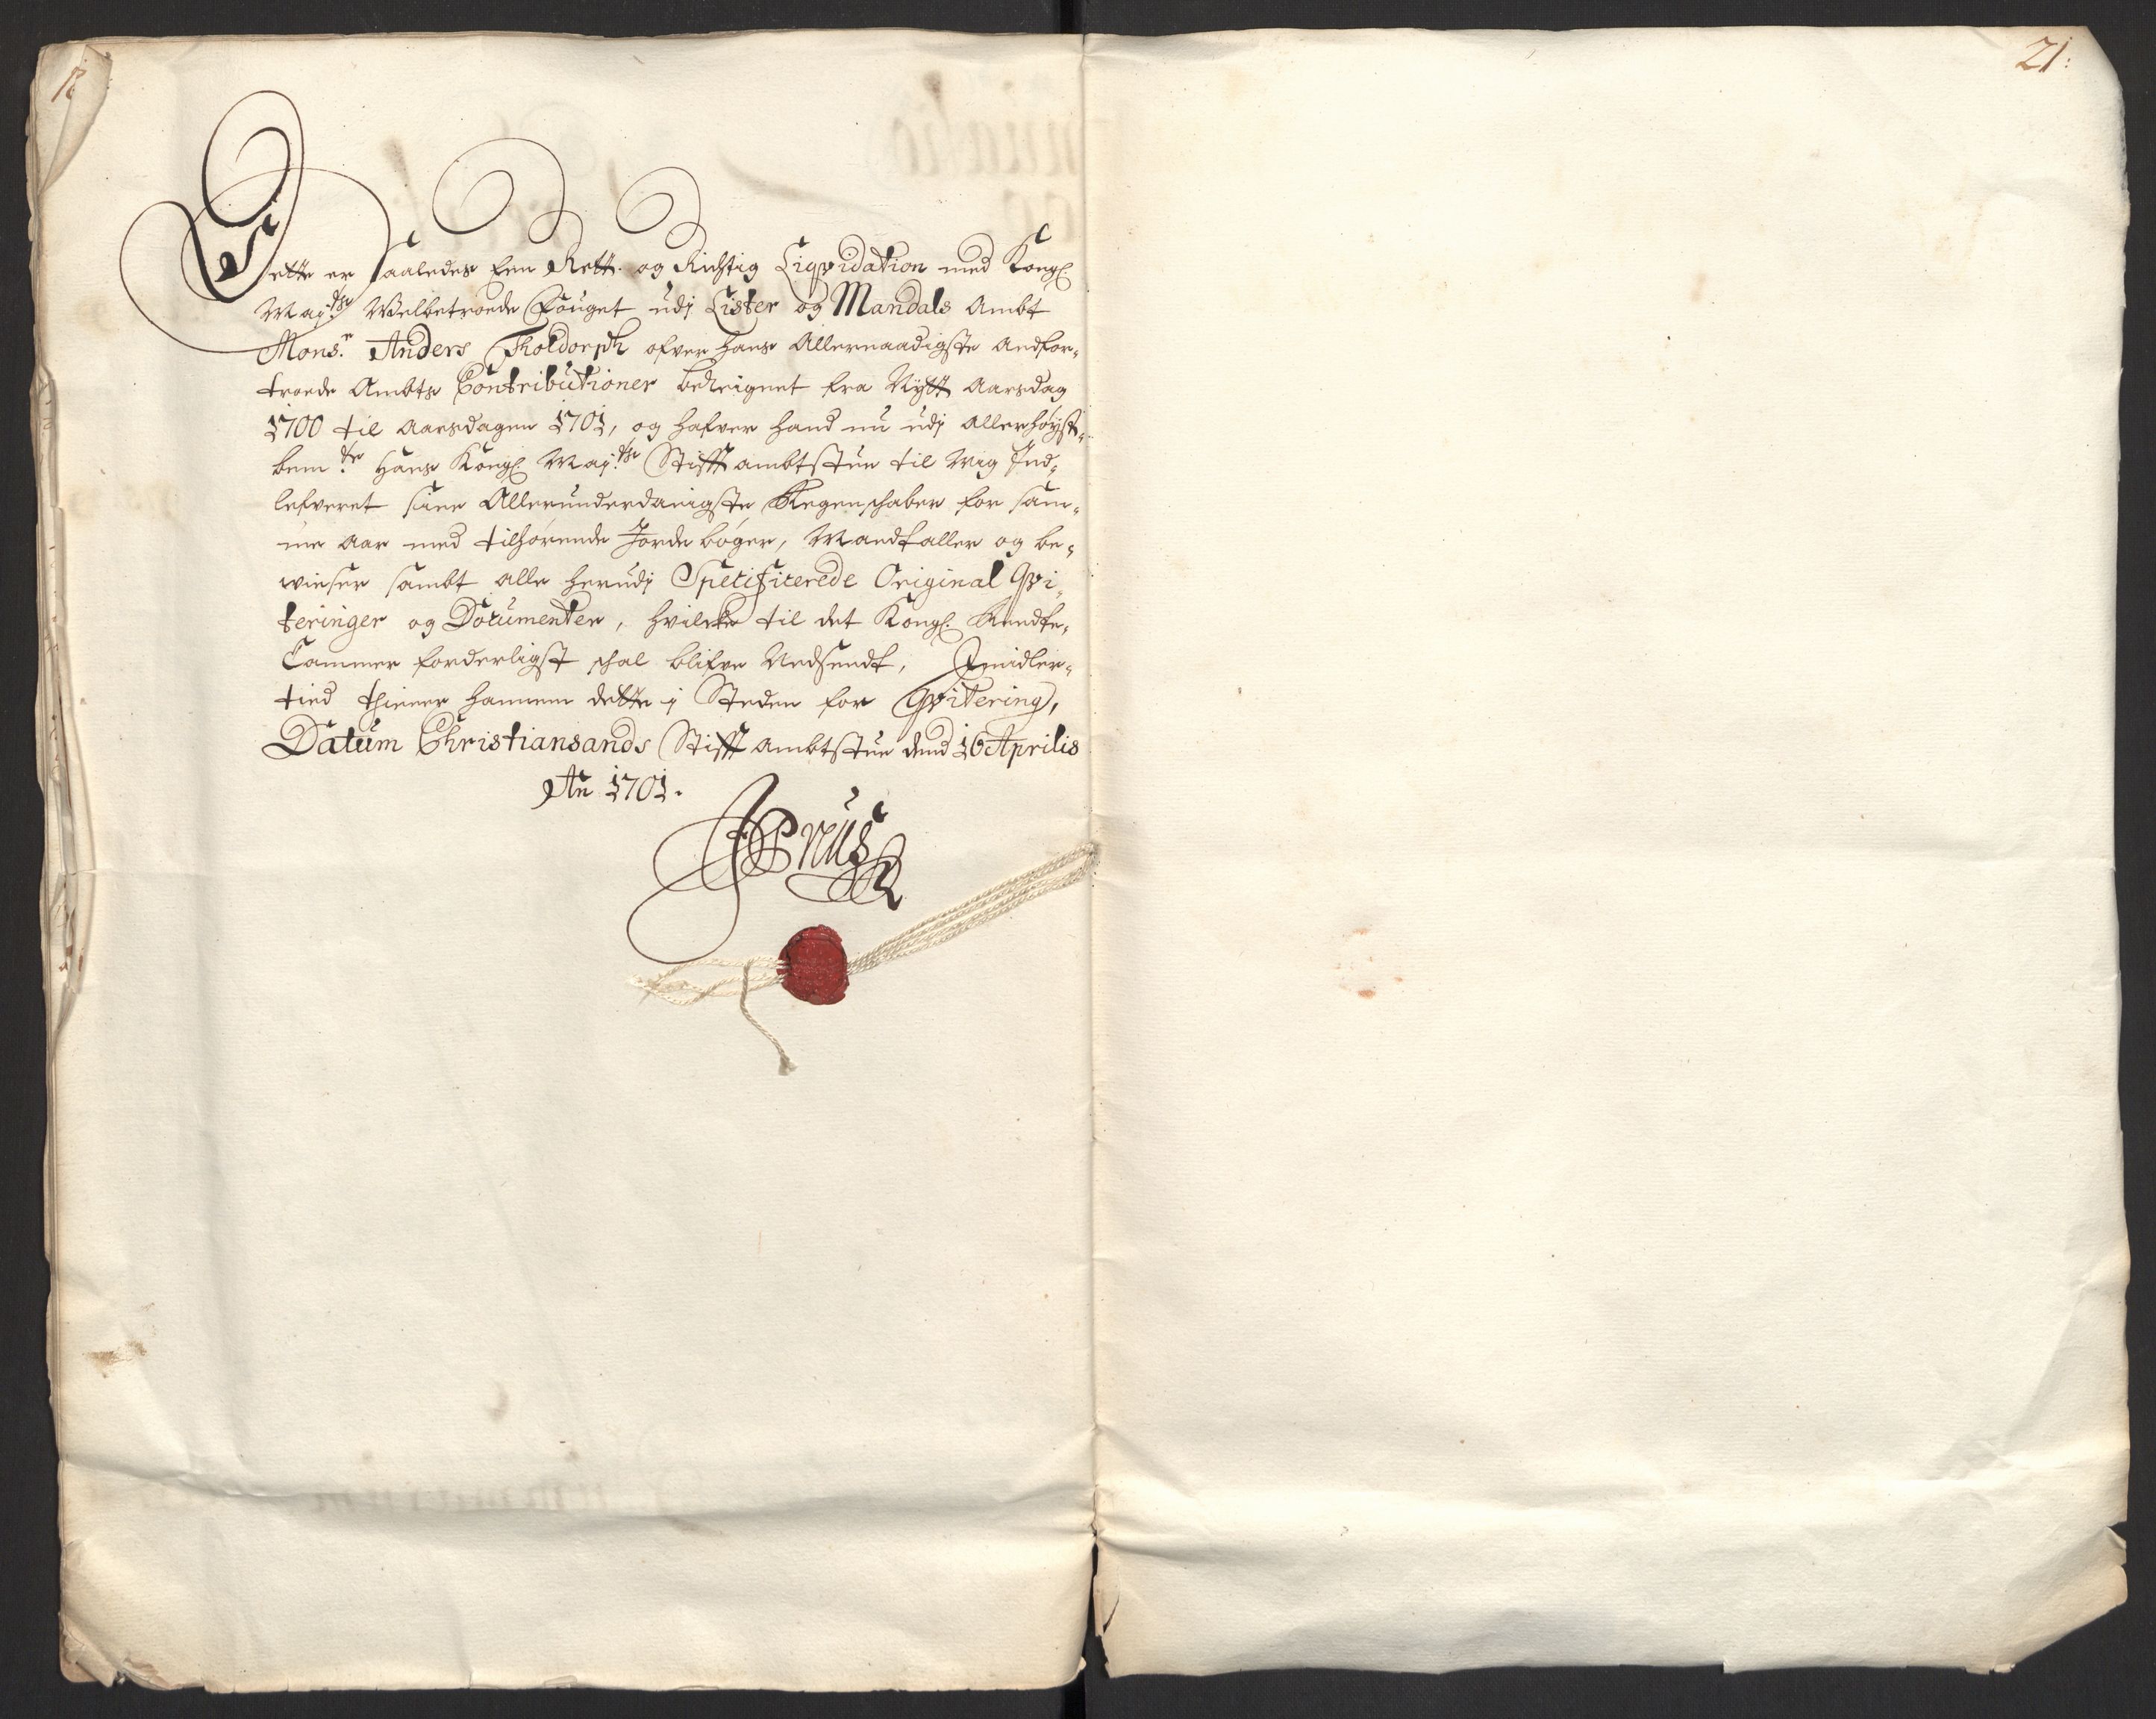 21:
Dette er saaledes een Rett. og Richtig Liqvidation med Kongl:
May:ts Welbetroede Fouget udj Lister og Mandals Ambt
Mons.r Anders Tholdorph ofver hans Allernaadigste Andfor-
troede Ambts Contributioner bereignet fra Nytt Aarsdag
1700 til Aarsdagen 1701, og hafver hand nu udj allerhøyst-
bem:te Hans Kongl. May:ts Stifft ambtstue til Mig Ind-
lefveret sine Allerunderdanigste Regenschaber for sam-
me Aar med tilhørende Jorde bøger, Mandtaller og be-
wieser sambt alle herudj Specificerede Original Qvi-
teringer og Documenter, hvilcke til det Kongl. Rendte-
Cammer forderligst schal blifve Nedsendt, Imidler-
tied thiener hannem dette i Steden for Qvitering,
Datum Christiansands Stifft ambtstue dend 16 Aprilis
Ao 1701.